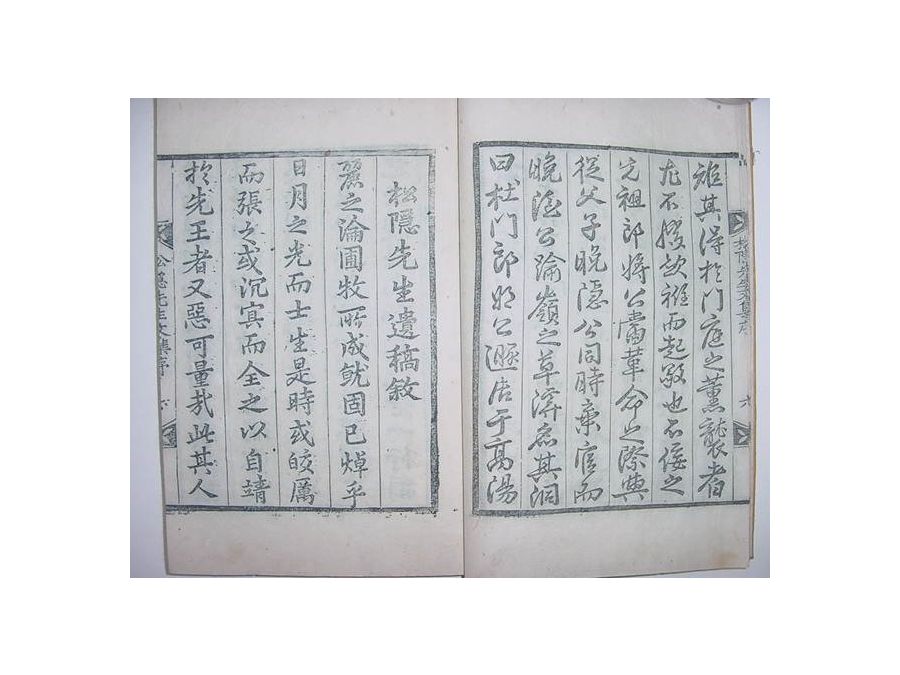 雖其得於門庭之薰襲者
尤不授故雅而起敬也不佞之
先祖郎將公當革命之際與
從父子晩隱公同時棄官而
晩隱公踰嶺之草澤名其洞
曰杜門郎將公遯居于高陽
松隱先生文集序
六
松隱先生遺稿敘
麗之淪圃牧所成就固已焯乎
日月之光而士生是時或皎厲
而張之或沉冥而全之以自靖
於先王者又惡可量哉此其人
松隱先生文集序
六